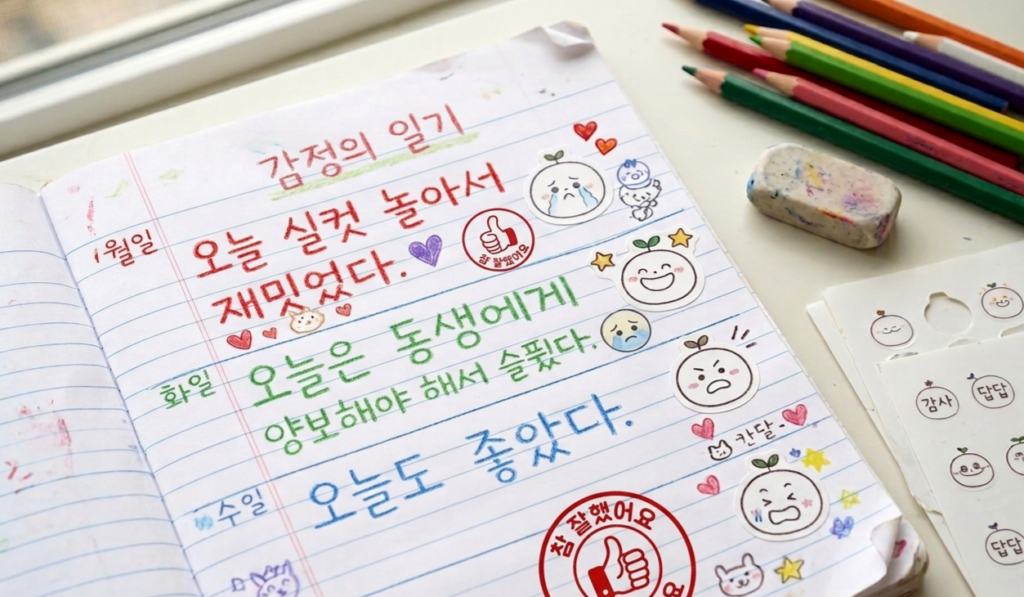 감정의 일기
1월일
오늘 실컷 놀아서
재밌었다.
참 잘했어요
화일
오늘은 동생에게
양보해야 해서 슬펐다.
수일
오늘도 좋았다.
칸달~
참 잘했어요
요
감사
답답
답답